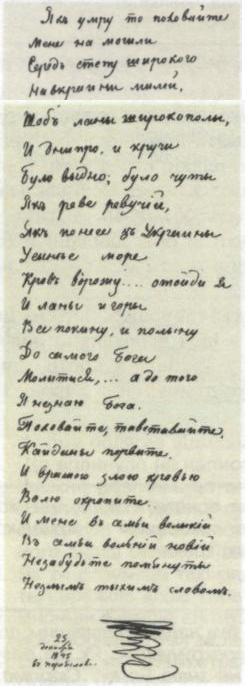 Якъ умру то поховайте
Мене на могыли
Середъ степу широкого
На вкраини милій,
Щобъ ланы широкополы,
И Днипро, и кручи
Було выдно, було чуты
Якъ реве ревучій,
Якъ понесе зъ Украины
У синье море
Кровъ ворожу.... отойди я
И ланы и горы
Все покину, и полыну
До самого Бога
Молытися,... а до того
Я незнаю Бога.
Поховайте, тавставайте,
Кайданы порвите
И вражою злою кровью
Волю окропите.
И мене въ семьи великій
Въ семьи вольній новій
Незабудьте помянуты
Незлымъ тыхимъ словомъ.
25
декабря
1845